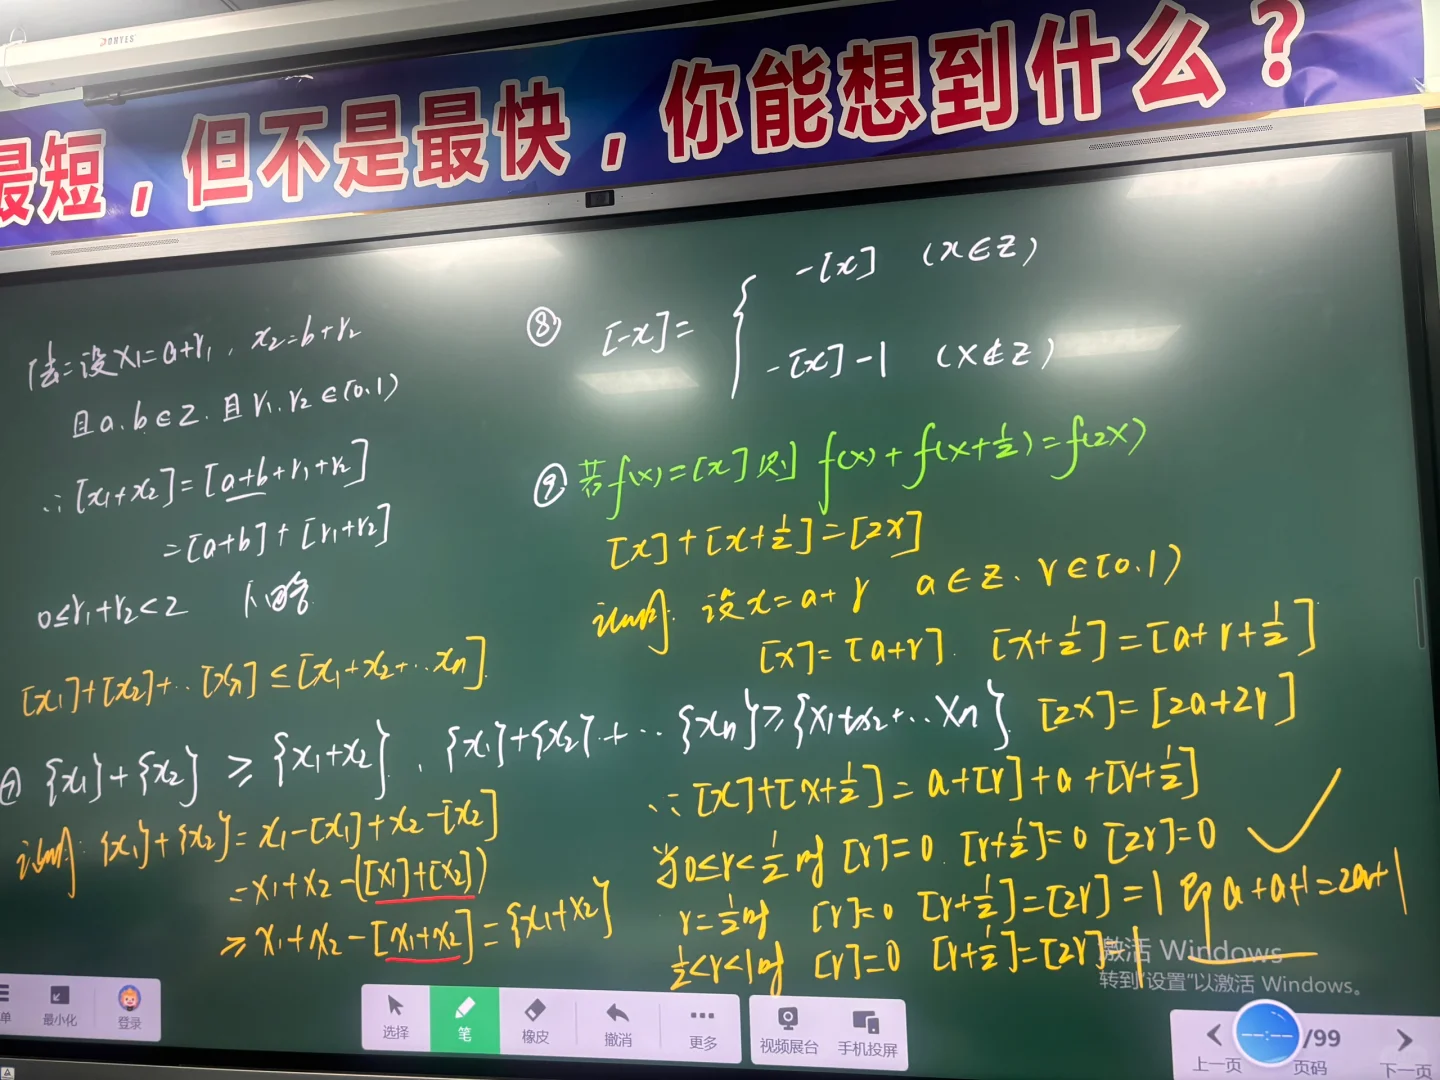 DONYES
最短，但不是最快，你能想到什么？
法二设x₁=a+r₁, x₂=b+r₂
且a.b∈Z.且r₁.r₂∈[0.1)
∴[x₁+x₂]=[a+b+r₁+r₂]
=[a+b]+[r₁+r₂]
0≤r₁+r₂<2 下略
[x₁]+[x₂]+..[xₙ]≤[x₁+x₂+..xₙ]
⑦ {x₁}+{x₂}≥{x₁+x₂}, {x₁}+{x₂}+..{xₙ}≥{x₁+x₂+..xₙ}
证明: {x₁}+{x₂}=x₁-[x₁]+x₂-[x₂]
=x₁+x₂-([x₁]+[x₂])
≥x₁+x₂-[x₁+x₂]={x₁+x₂}
⑧ [-x]={ -[x] (x∈Z)
-[x]-1 (x∉Z)
⑨ 若f(x)=[x]则 f(x)+f(x+½)=f(2x)
[x]+[x+½]=[2x]
证明: 设x=a+r a∈Z. r∈[0.1)
[x]=[a+r]. [x+½]=[a+r+½]
[2x]=[2a+2r]
∴[x]+[x+½]=a+[r]+a+[r+½]
当0≤r<½时 [r]=0. [r+½]=0 [2r]=0 ✓
r=½时 [r]=0 [r+½]=[2r]=1 即a+a+1=2a+1
½<r<1时 [r]=0 [r+½]=[2r]=1
激活 Windows
转到"设置"以激活 Windows。
单
最小化
登录
选择
笔
橡皮
撤消
更多
视频展台
手机投屏
上一页
/99
页码
下一页